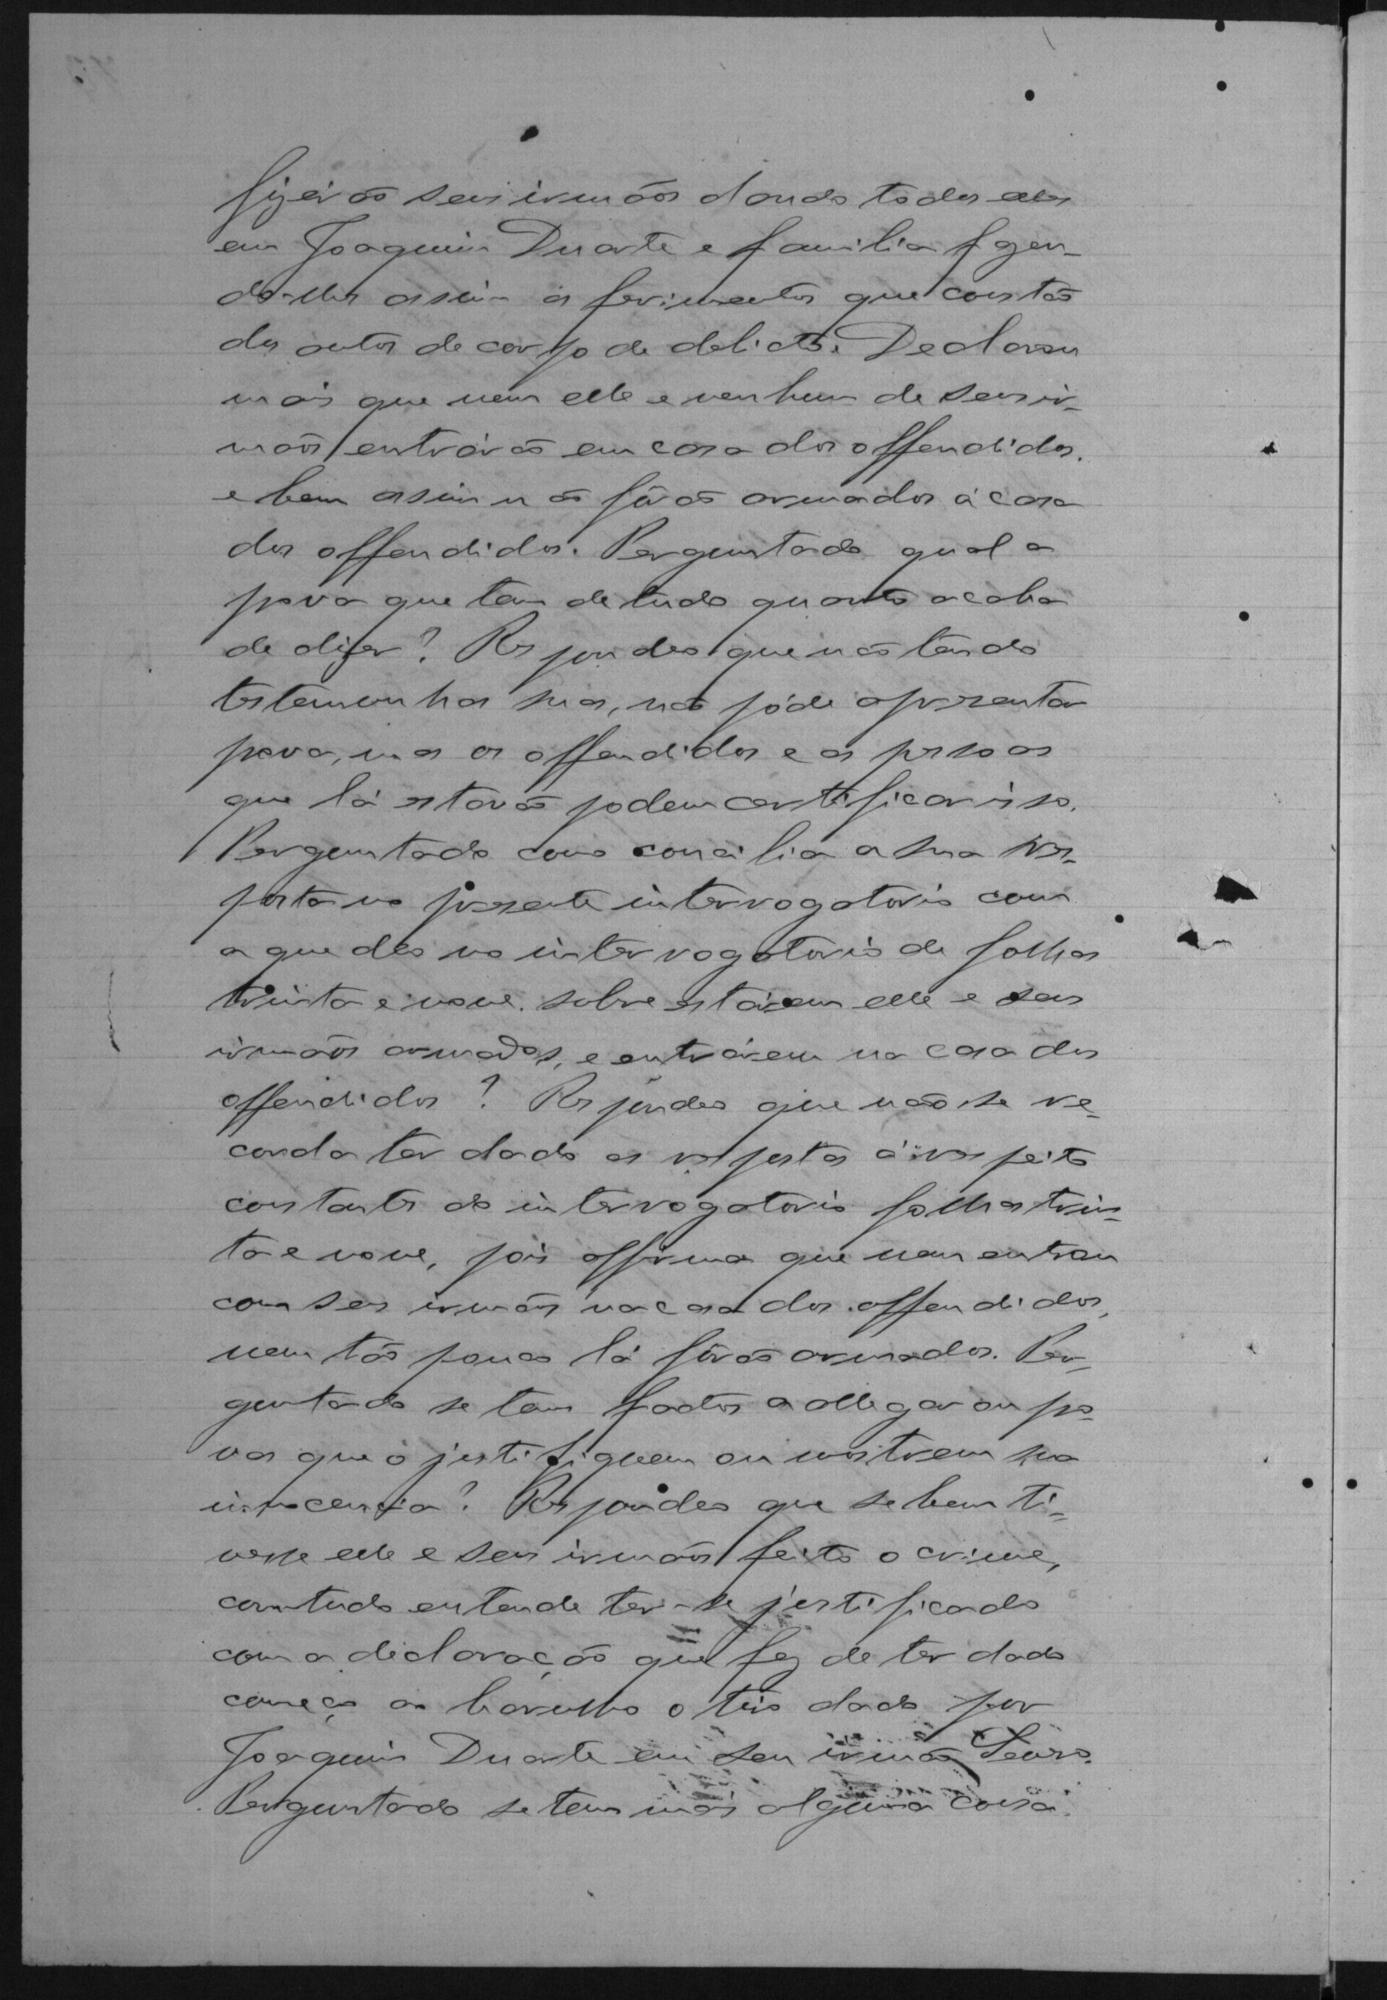 fizérão seus irmãos dando todos elles
em Joaquim Duarte e familia fazen-
do-lhes assim os ferimentos que constão
dos autos de corpo de delicto. Declarou
mais que nem elle e nenhum de seus ir-
mãos entrárão em casa dos offendidos.
e bem assim não fôrão armados á casa
dos offendidos. Perguntado qual a
prova que tem de tudo quanto acaba
de dizer? Respondeo que não tendo
testemunhas suas, não póde apresentar
prova, mas os offendidos e as pessoas
que lá estavão podem certificar isso.
Perguntado como concilia a sua res-
posta no presente interrogatorio com
a que deo no interrogatorio de folhas
trinta e nove. sobre estárem elle e seus
irmãos armados, e entrárem na casa dos
offendidos? Respondeo que não se re-
corda ter dado as respostas á respeito
constantes do interrogatorio folhas trin-
ta e nove, pois affirma que nem entrou
com seus irmãos na casa dos offendidos,
nem tão pouco lá fôrão armados. Per-
guntado se tem factos a allegar ou pro-
vas que o justifiquem ou mostrem sua
innocencia? Respondeo que se bem ti-
vesse elle e seus irmãos feito o crime,
comtudo entende ter-se justificado
com a declaração que fez de ter dado
começo ao barulho o tiro dado por
Joaquim Duarte em seu irmão
Perguntado se tem mais alguma cousa